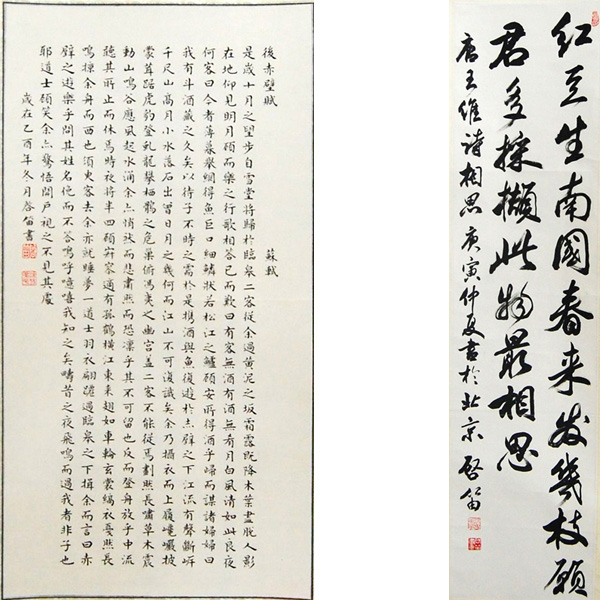 紅豆生南國春来发幾枝願
君多採擷此物最相思
唐王維诗相思庚寅仲夏書於北京啓笛
後赤壁賦 蘇軾
是歲十月之望步自雪堂將歸於臨皋二客從余過黃泥之坂霜露既降木葉盡脫人影
在地仰見明月顧而樂之行歌相答已而歎曰有客無酒有酒無肴月白風清如此良夜
何客曰今者薄暮舉網得魚巨口細鱗狀若松江之鱸顧安所得酒乎歸而謀諸婦婦曰
我有斗酒藏之久矣以待子不時之需於是攜酒與魚復遊於赤壁之下江流有聲斷岸
千尺山高月小水落石出曾日月之幾何而江山不可復識矣余乃攝衣而上履巉巖披
蒙茸踞虎豹登虬龍攀栖鶻之危巢俯馮夷之幽宮蓋二客不能從焉劃然長嘯草木震
動山鳴谷應風起水涌余亦悄然而悲肅然而恐凜乎其不可留也反而登舟放乎中流
聽其所止而休焉時夜將半四顧寂寥適有孤鶴橫江東來翅如車輪玄裳縞衣戛然長
鳴掠余舟而西也須臾客去余亦就睡夢一道士羽衣翩躚過臨皋之下揖余而言曰赤
壁之遊樂乎問其姓名俛而不答嗚呼噫嘻我知之矣疇昔之夜飛鳴而過我者非子也
耶道士顧笑余亦驚悟開戶視之不見其處
歲在乙酉年冬月啓笛書